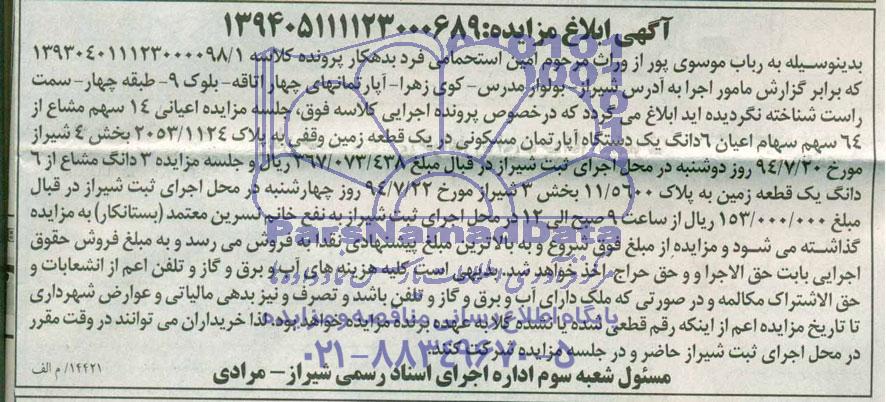 آگهی ابلاغ مزایده: ۱۳۹۴۰۵۱۱۱۱۱۲۳۰۰۰۶۸۹
بدینوسیله به رباب موسوی پور از وراث مرحوم امین استحمامی فرد بدهکار پرونده کلاسه ۱۳۹۳۰۴۰۱۱۱۲۳۰۰۰۰۹۸/۱
که برابر گزارش مامور اجرا به آدرس شیراز- بولوار مدرس- کوی زهرا- آپارتمانهای چهار اتاقه- بلوک ۹- طبقه چهار- سمت
راست شناخته نگردیده اید ابلاغ می گردد که درخصوص پرونده اجرایی کلاسه فوق، جلسه مزایده اعیانی ۱۴ سهم مشاع از
۶۴ سهم سهام اعیان ۶دانگ یک دستگاه آپارتمان مسکونی در یک قطعه زمین وقفی به پلاک ۲۰۵۳/۱۱۲۴ بخش ۴ شیراز
مورخ ۹۴/۷/۲۰ روز دوشنبه در محل اجرای ثبت شیراز در قبال مبلغ ۳۶۷/۰۷۳/۴۳۸ ریال و جلسه مزایده ۳ دانگ مشاع از ۶
دانگ یک قطعه زمین به پلاک ۱۱/۵۶۰۰ بخش ۳ شیراز مورخ ۹۴/۷/۲۲ روز چهارشنبه در محل اجرای ثبت شیراز در قبال
مبلغ ۱۵۳/۰۰۰/۰۰۰ ریال از ساعت ۹ صبح الی ۱۲ در محل اجرای ثبت شیراز به نفع خانم نسرین معتمد (بستانکار) به مزایده
گذاشته می شود و مزایده از مبلغ فوق شروع و به بالاترین مبلغ پیشنهادی نقدا به فروش می رسد و به مبلغ فروش حقوق
اجرایی بابت حق الاجرا و و حق حراج اخذ خواهد شد. بدیهی است کلیه هزینه های آب و برق و گاز و تلفن اعم از انشعابات و
حق الاشتراک مکالمه و در صورتی که ملک دارای آب و برق و گاز و تلفن باشد و تصرف و نیز بدهی مالیاتی و عوارض شهرداری
تا تاریخ مزایده اعم از اینکه رقم قطعی شده یا نشده کلا به عهده برنده مزایده خواهد بود. لذا خریداران می توانند در وقت مقرر
در محل اجرای ثبت شیراز حاضر و در جلسه مزایده شرکت کنند.
مسئول شعبه سوم اداره اجرای اسناد رسمی شیراز- مرادی
۱۴۴۲۱/ م الف
ParsNamadData
پایگاه اطلاع رسانی مناقصه و مزایده
۰۲۱-۸۸۳۴۹۶۷۰-۵